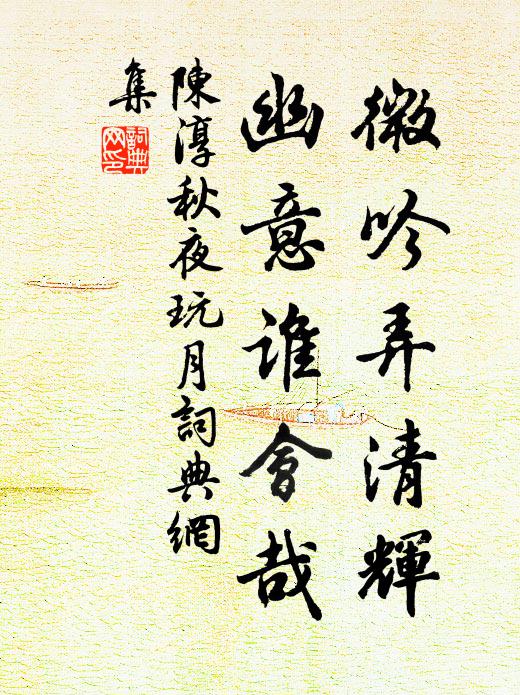 微吟弄清輝
幽意誰會哉
陳淳秋夜玩月詞典網
集
詞典網印